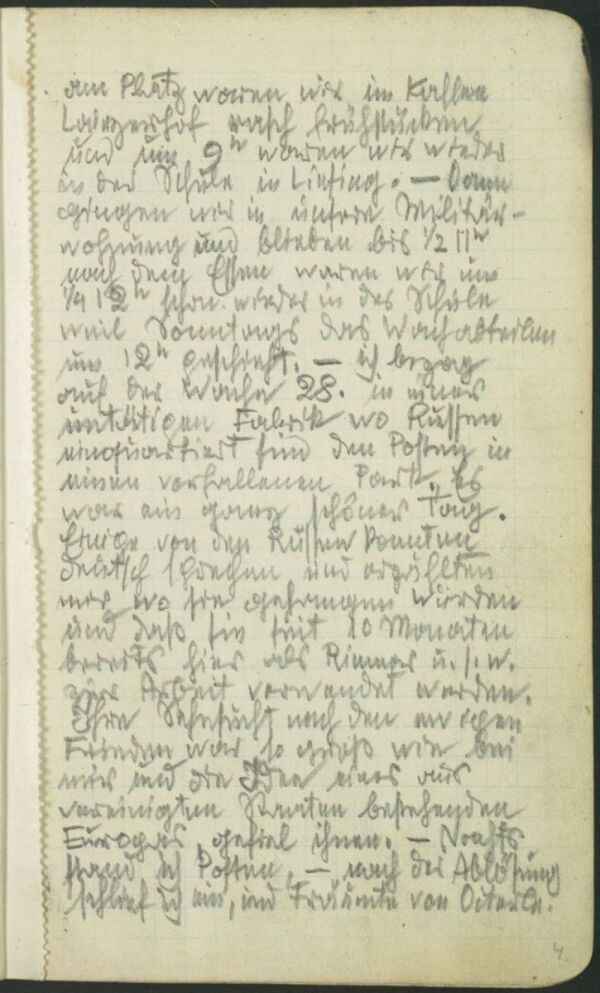 am Platz waren wir im Kaffee
Lainzerhof rasch frühstücken
und um 9h waren wir wieder
in der Schule in Liesing. — Dann
gingen wir in unsere Militär-
wohnung und blieben bis 1/2 11h
nach dem Essen waren wir um
1/4 12h schon wieder in der Schule
weil Sonntags das Wachabteilen
um 12h geschieht. — ich bezog
auf der Wache 28. in einer
untätigen Fabrik wo Russen
einquartiert sind den Posten in
einen verfallenen Park. Es
war ein ganz schöner Tag.
Einige von den Russen konnten
deutsch sprechen und erzählten
mir wo sie gefangen wurden
und daß sie seit 10 Monaten
bereits hier als u.s.w.
zur Arbeit verwendet werden.
Ihre Sehnsucht nach den ewigen
Frieden war so groß wie bei
mir und die Idee eines aus
vereinigten Staaten bestehenden
Europas gefiel ihnen. — Nachts
stand ich Posten. — nach der Ablösung
schlief ich ein, und träumte von
4.